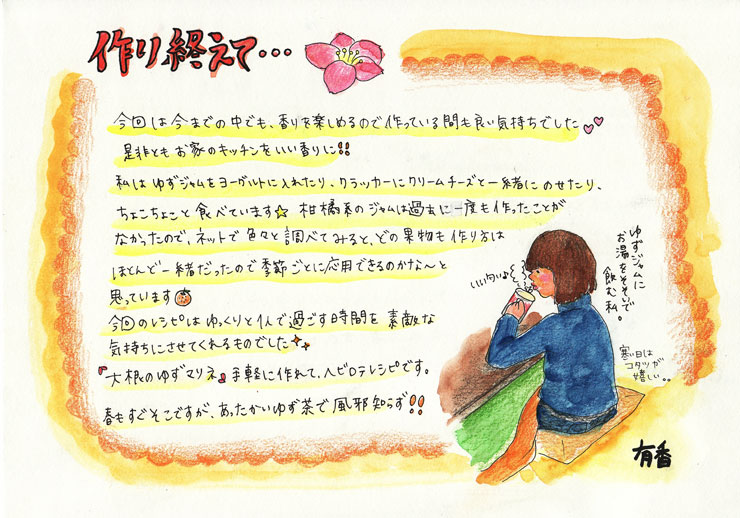 作り終えて…
今回は今までの中でも、香りを楽しめるので作っている間も良い気持ちでした
是非ともお家のキッチンをいい香りに!!
私はゆずジャムをヨーグルトに入れたり、クラッカーにクリームチーズと一緒にのせたり、
ちょこちょこと食べています☆ 柑橘系のジャムは過去に一度も作ったことが
なかったので、ネットで色々と調べてみると、どの果物も作り方は
ほとんど一緒だったので季節ごとに応用できるのかな〜と
思っています
今回のレシピはゆっくりと1人で過ごす時間を素敵な
気持ちにさせてくれるものでした
『大根のゆずマリネ』手軽に作れて、ヘビロテレシピです。
春もすぐそこですが、あったかいゆず茶で風邪知らず!!
いい匂い♪
ゆずジャムに
お湯をそそいで
飲む私。
寒い日は
コタツが
嬉しい。。
有香